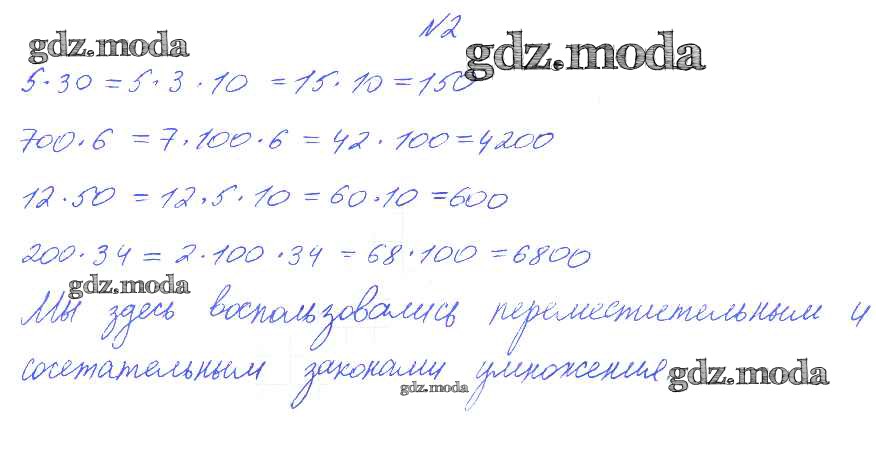 №2
gdz.moda
gdz.moda
5·30 = 5·3·10 = 15·10 = 150
700·6 = 7·100·6 = 42·100 = 4200
12·50 = 12·5·10 = 60·10 = 600
200·34 = 2·100·34 = 68·100 = 6800
gdz.moda
Мы здесь воспользовались переместительным и
сочетательным законами умножения.
gdz.moda
gdz.moda